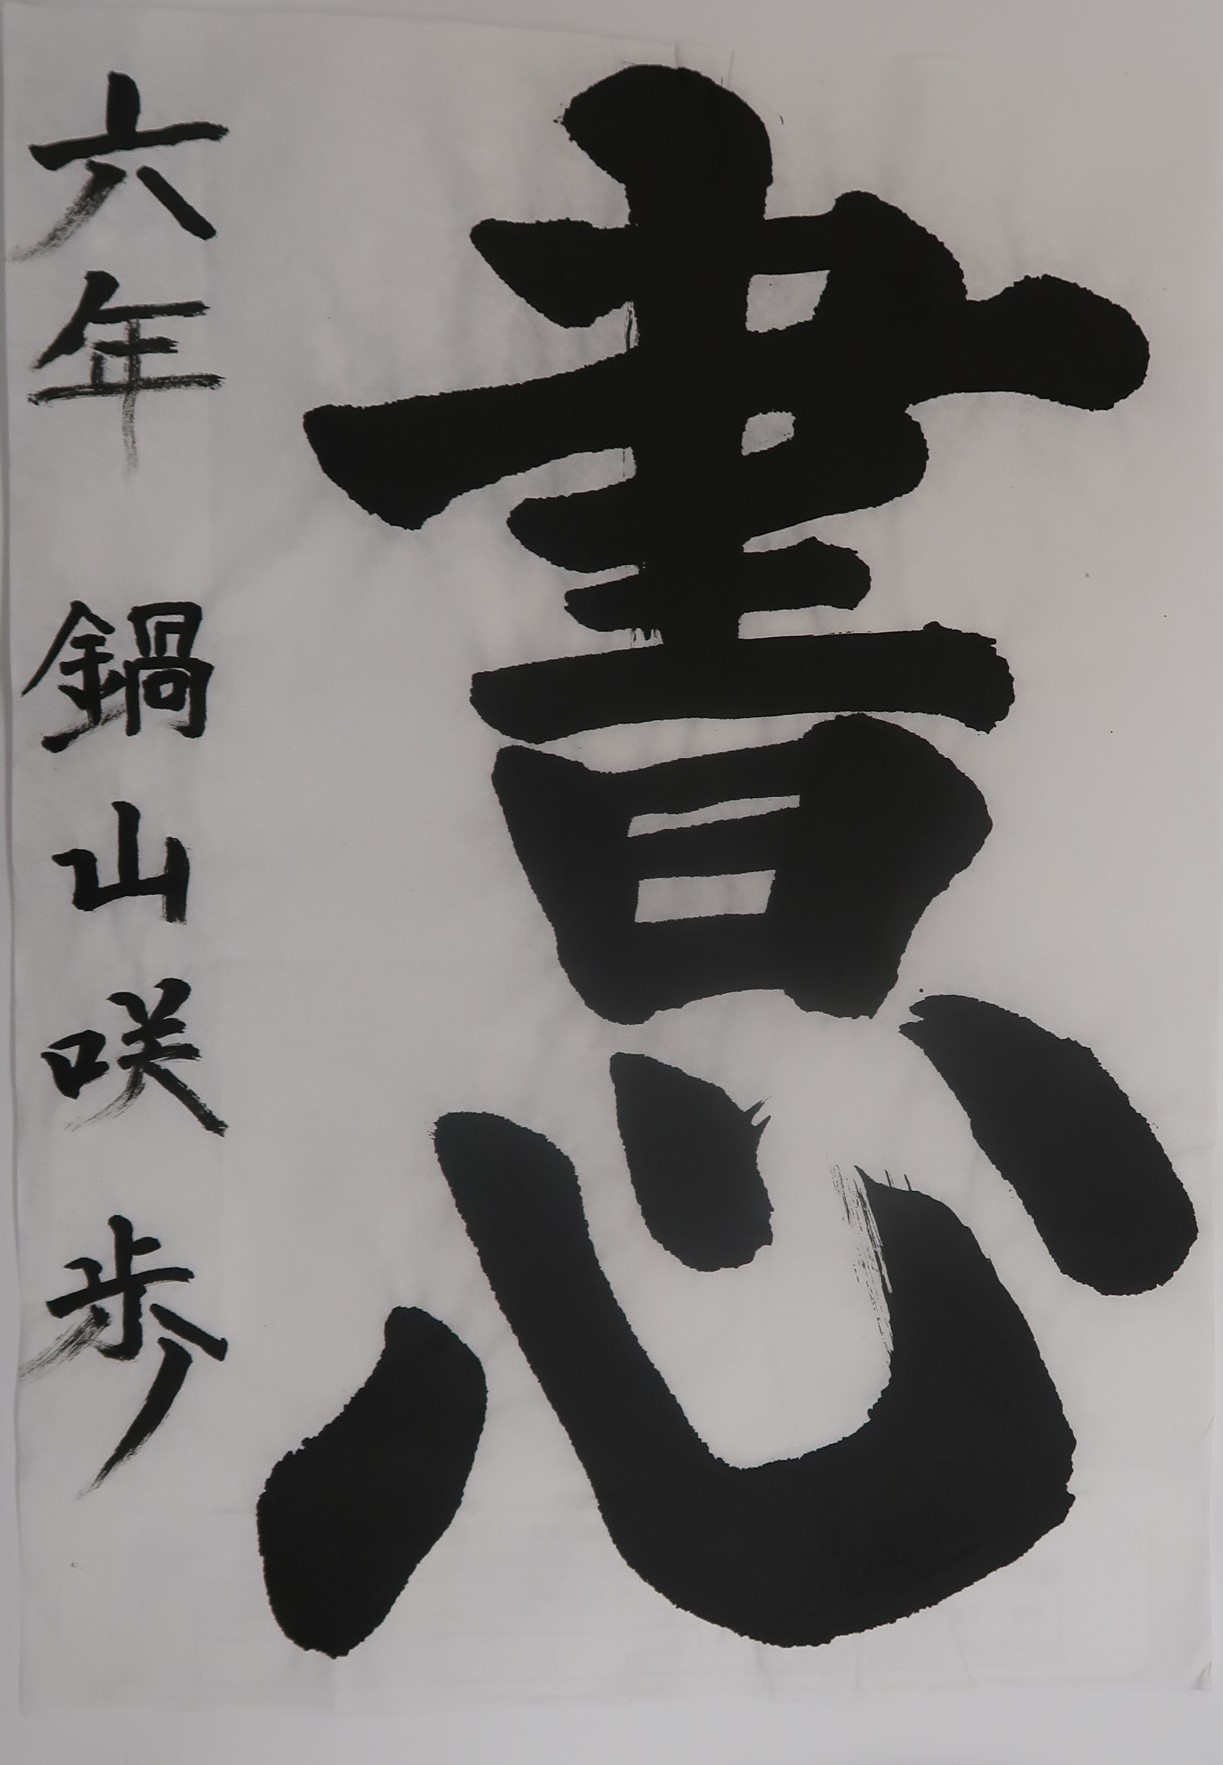 書心
六年 鍋山咲歩